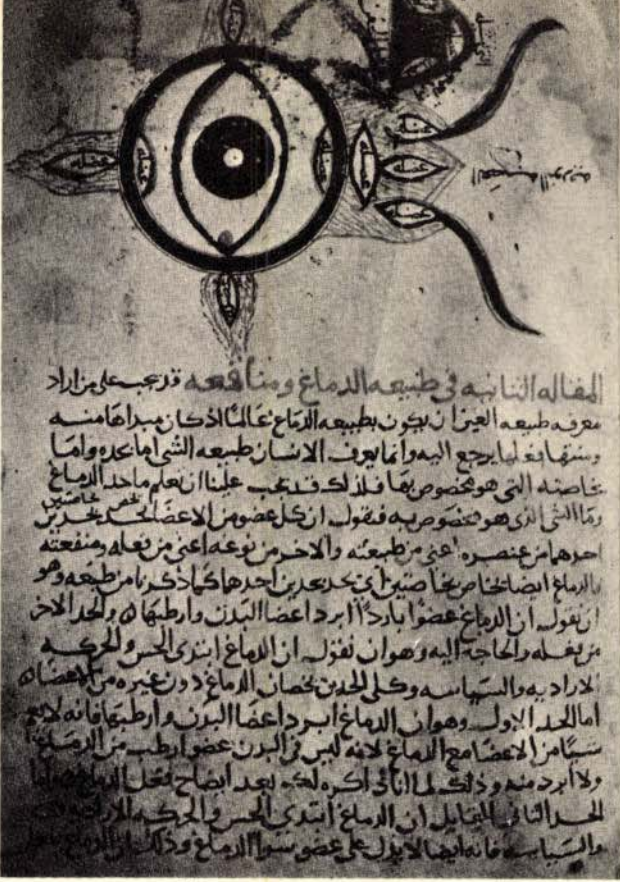 عضله
عضله
عضله
عضله
عضله
عضله
عضله
المقاله الثانيه فى طبيعه الدماغ ومنافعه قد يجب على من اراد
معرفه طبيعه العين ان يكون بطبيعه الدماغ عالمًا اذ كان مبداها منه
ومنتهاها يرجع اليه وانما يعرف الانسان طبيعه الشى اما بحده واما
بخاصته التى هو مخصوص بها فلذلك قد يجب علينا ان نعلم ما حد الدماغ
وما الشى الذى هو مخصوص به فنقول ان كل عضو من الاعضا يحد بحدين
احدهما من عنصره اعنى من طبيعته والاخر من نوعه اعنى من فعله ومنفعته
والدماغ ايضا بخاصتين اى يحد بحدين احدهما كما ذكرنا من طبعه وهو
ان نقول ان الدماغ عضوًا باردًا ابرد اعضا البدن وارطبها والحد الاخر
من فعله والحاجه اليه وهو ان نقول ان الدماغ ابتدى الحس والحركه
الاراديه والسياسه وكلى الحدين يخصان الدماغ دون غيره من الاعضا
اما الحد الاول وهو ان الدماغ ابرد اعضا البدن وارطبها فانه لا يعم
شيًا من الاعضا مع الدماغ لانه ليس فى البدن عضو ارطب من الدماغ
ولا ابرد منه وذلك لما انا ذاكره لك بعد ايضاح فعل الدماغ
الحد الثانى القايل ان الدماغ ابتدى الحس والحركه الاراديه
والسياسه فانه ايضا لا يدل على عضو سوا الدماغ وذلك ان الدماغ